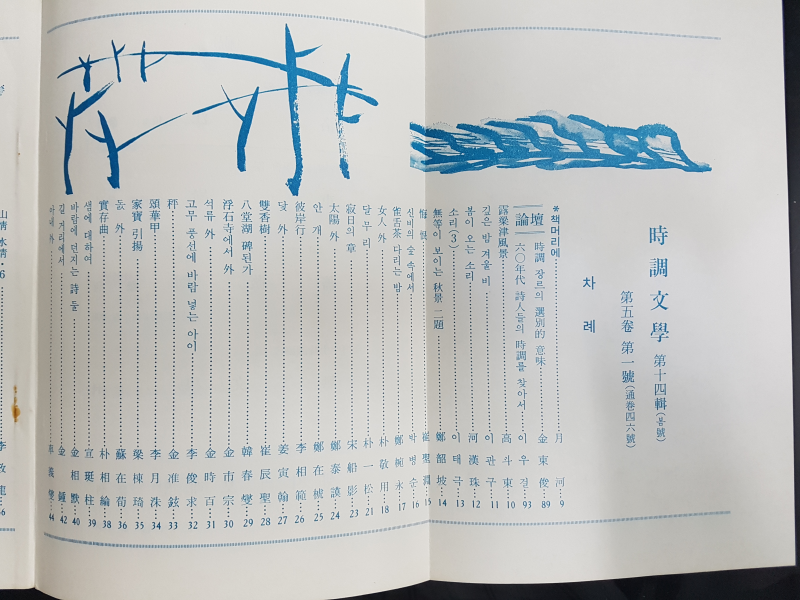 時調文學 第十四輯 (봄號)
第五卷 第一號 (通卷四六號)
차례
*책머리에 月河 9
論壇
時調 장르의 選別的 意味 金東俊 89
六〇年代 詩人들의 時調를 찾아서 이우걸 93
露梁津風景 高斗東 10
깊은 밤 겨울비 이관구 11
봄이 오는 소리 河漢珠 12
소리(3) 이태극 13
無等이 보이는 秋景 二題 鄭韶坡 14
悔恨 崔聖淵 15
신비의 숲 속에서 박병순 16
雀舌茶 다리는 밤 鄭椀永 17
女人 外 朴敬用 18
달무리 朴一松 21
寂日의 章 宋船影 23
太陽 外 鄭泰謨 24
안개 鄭在虎 25
彼岸行 李相範 26
닻 外 姜寅翰 27
雙香樹 崔辰聖 28
八堂湖 碑된가 韓春燮 29
浮石寺에서 外 金市宗 30
석류 外 金時百 31
고무 풍선에 바람 넣는 아이 李俊求 32
秤 金准鉉 33
頌華甲 李月洙 34
家寶 引揚 梁棟琦 35
돐 外 蘇在荀 36
實存曲 朴相綸 38
샘에 대하여 宣珽柱 39
바람에 던지는 詩 들 金相默 40
길 거리에서 金鍾 42
外 義燮 44
山情 水情·6
李 龍